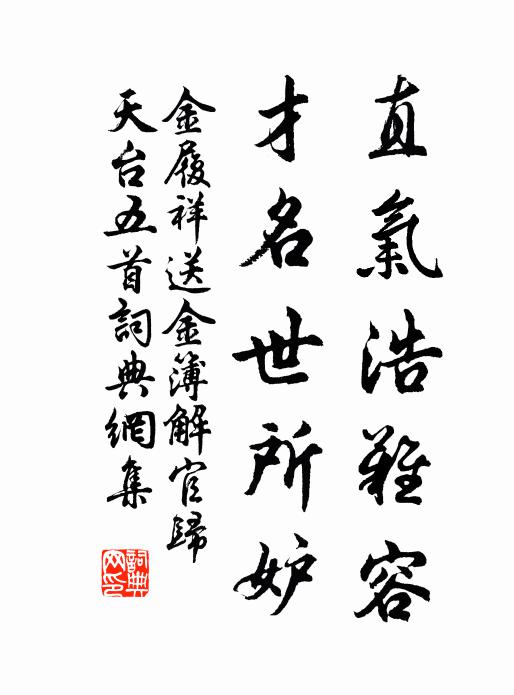 直氣浩難容
才名世所妒
金履祥送金簿解官歸
天台五首詞典網集
詞典網印